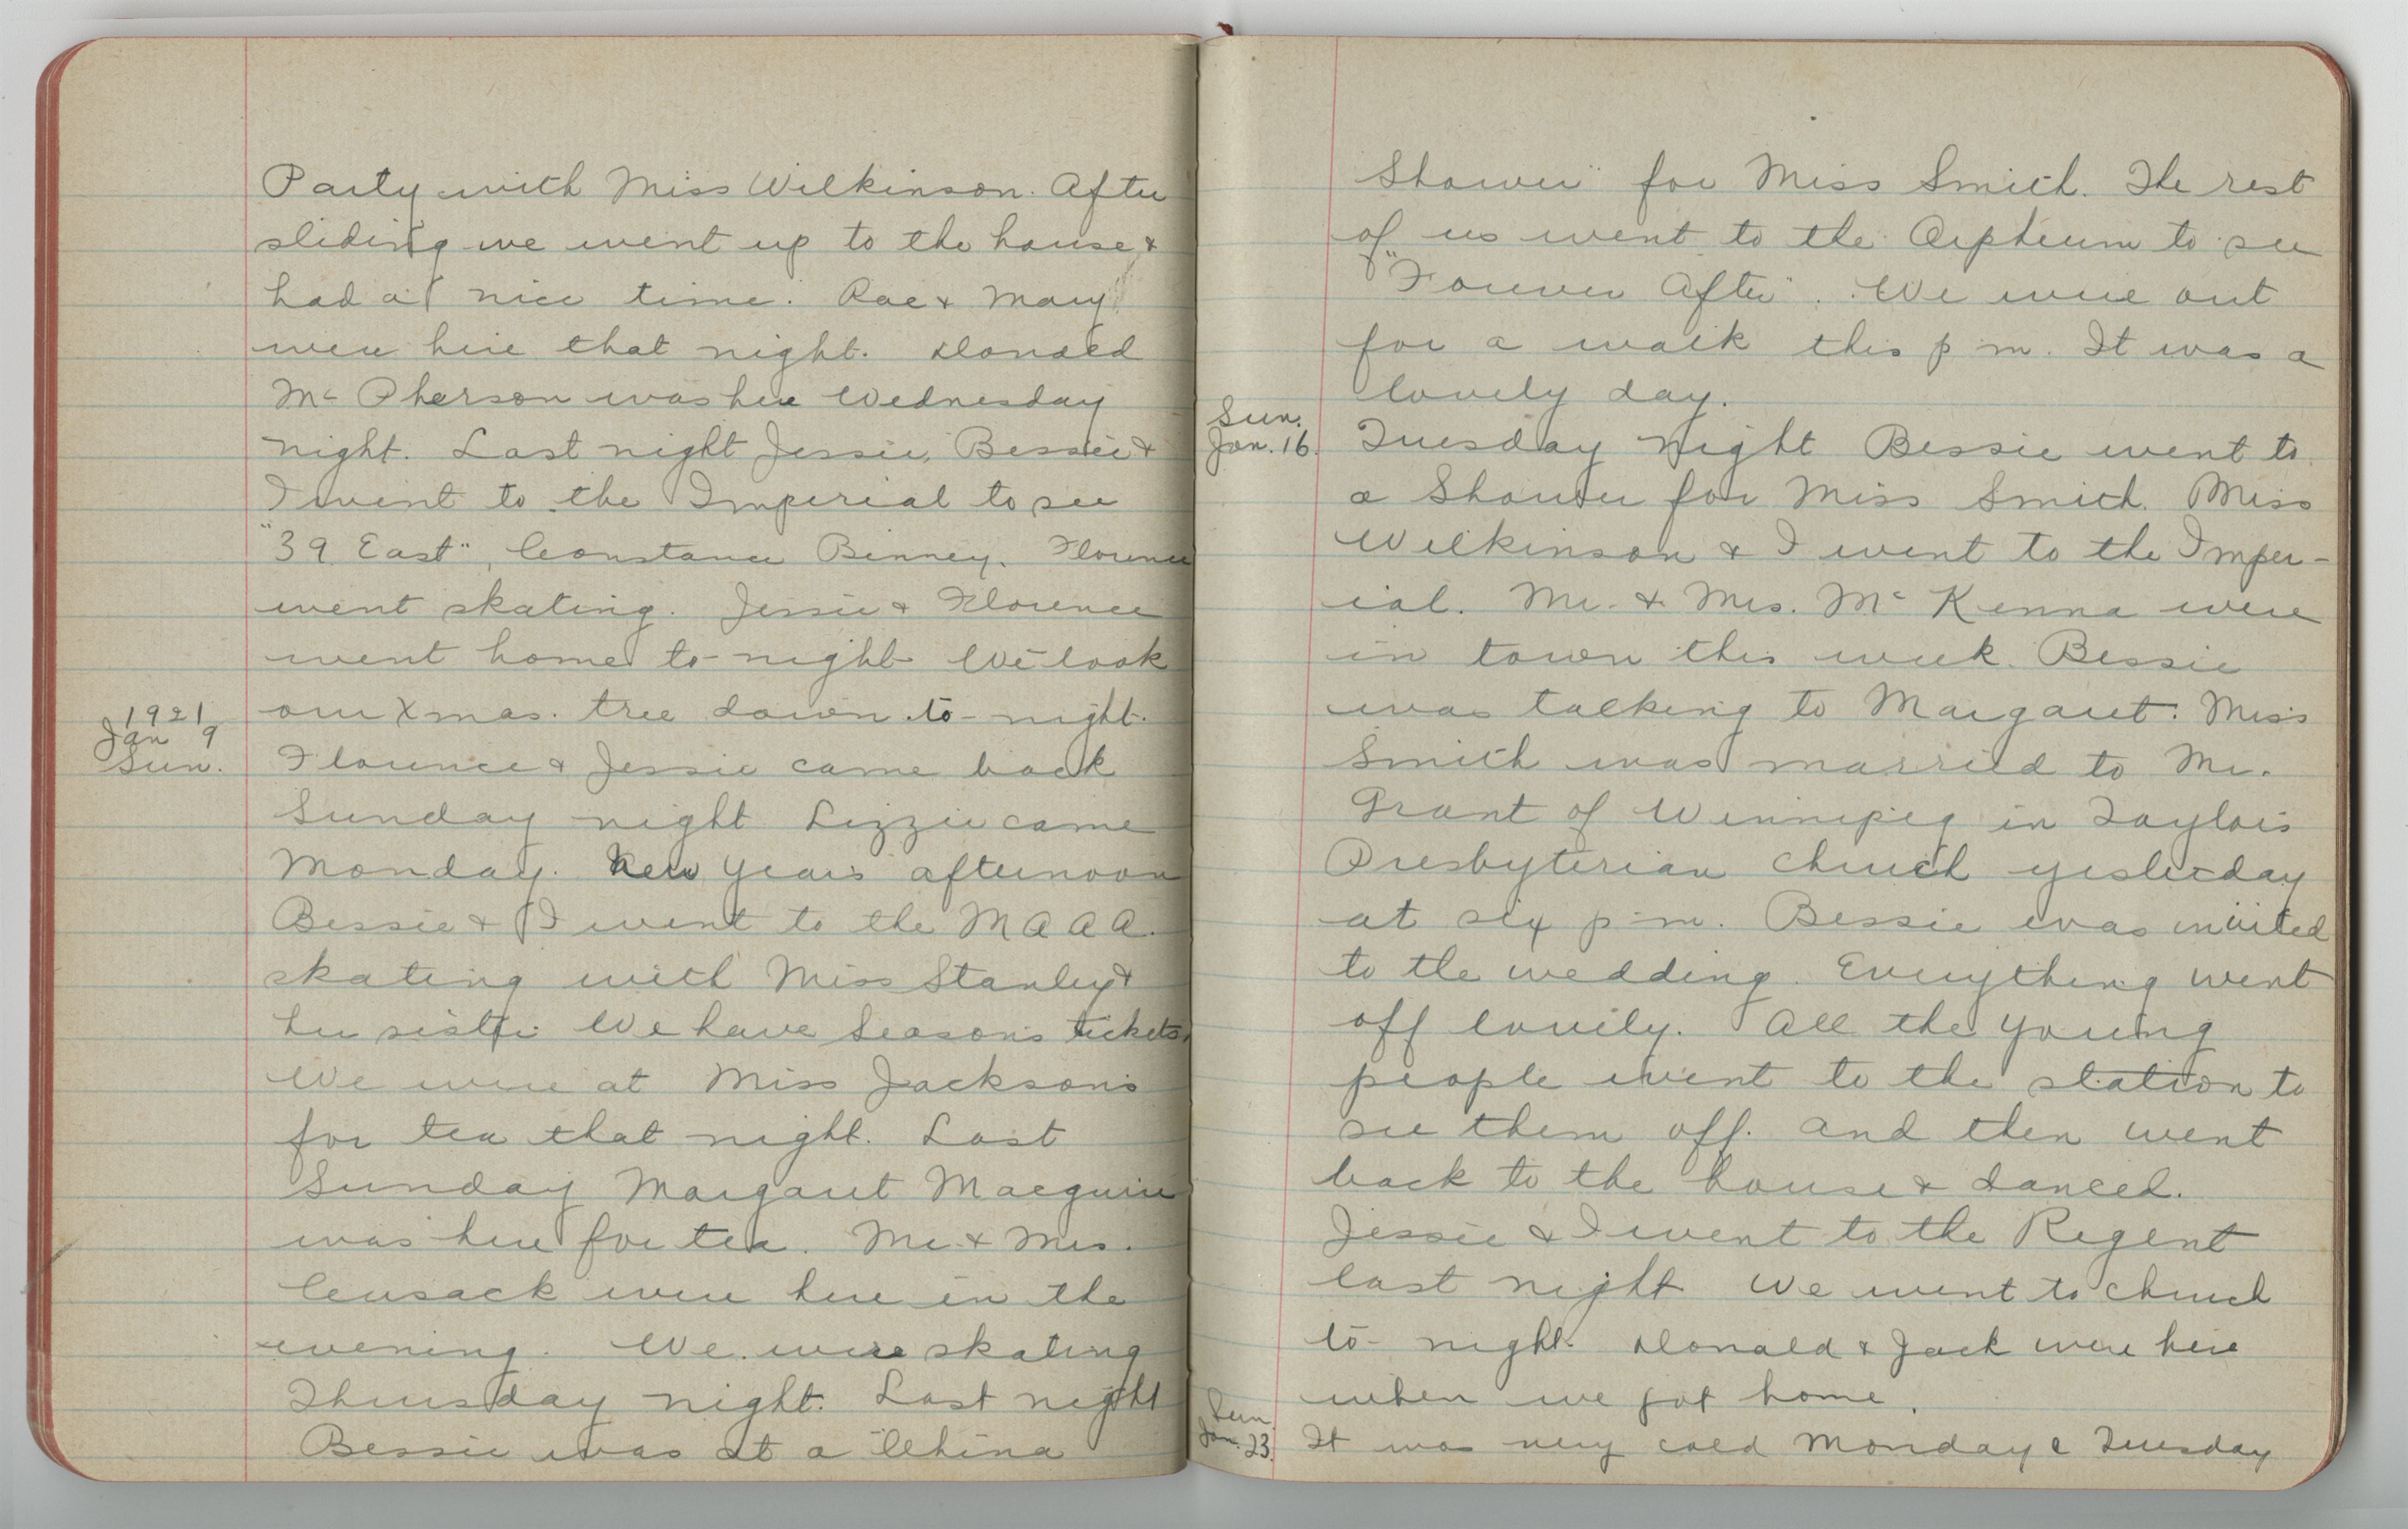 Party with Miss Wilkinson. After
sliding we went up to the house &
had a nice time. Rae & Mary
were here that night. Donald
Mc Pherson was here Wednesday
night. Last night Jessie, Bessie &
I went to the Imperial to see
"39 East", Constance Binney. Florence
went skating. Jessie & Florence
went home to-night We took
our Xmas. tree down to-night.
1921
Jan 9
Sun.
Florence & Jessie came back
Sunday night Lizzie came
Monday. New Years afternoon
Bessie & I went to the M A A A.
skating with Miss Stanley &
her sister. We have Seasons tickets.
We were at Miss Jackson's
for tea that night. Last
Sunday Margaret Macguire
was here for tea. Mr. & Mrs.
Cusack were here in the
evening. We were skating
Thursday night. Last night
Bessie was at a "China
Shower" for Miss Smith. The rest
of us went to the Orpheum to see
"Forever After". We were out
for a walk this p m. It was a
lovely day.
Sun.
Jan. 16.
Tuesday night Bessie went to
a Shower for Miss Smith. Miss
Wilkinson & I went to the Imper-
ial. Mr. & Mrs. Mc Kenna were
in town this week. Bessie
was talking to Margaret. Miss
Smith was married to Mr.
Grant of Winnipeg in Taylor's
Presbyterian church yesterday
at six p m. Bessie was invited
to the wedding. Everything went
off lovely. All the young
people went to the station to
see them off. and then went
back to the house & danced.
Jessie & I went to the Regent
last night We went to church
to-night. Donald & Jack were here
when we got home.
Sun.
Jan. 23.
It was very cold Monday & Tuesday